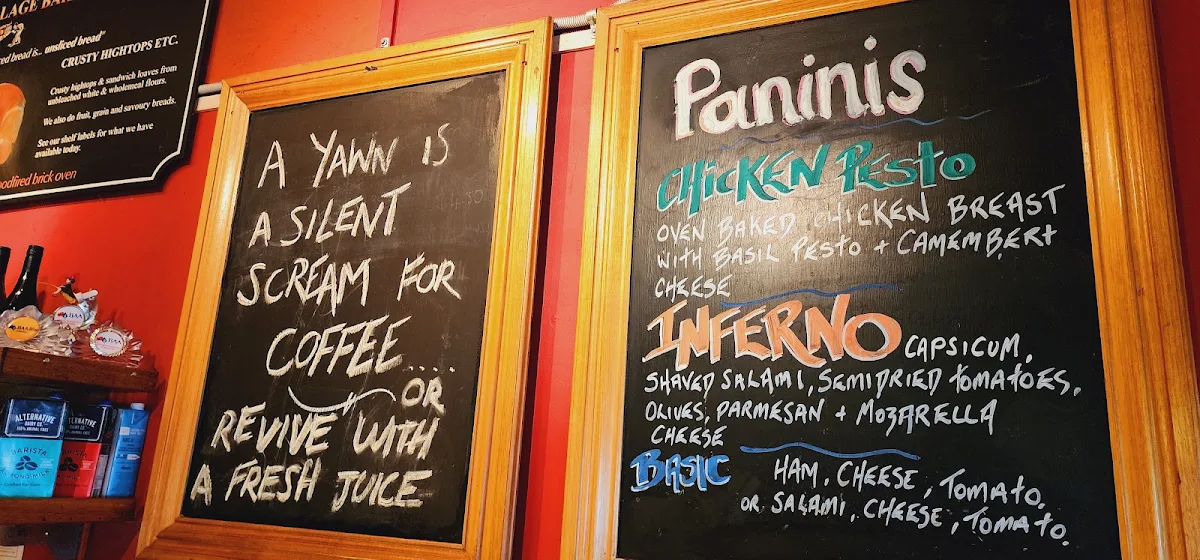 LAGE BA
ed bread is... unsliced bread"
CRUSTY HIGHTOPS ETC.
Crusty hightops & sandwich loaves from
unbleached white & wholemeal flours.
We also do fruit, grain and savoury breads.
See our shelf labels for what we have
available today.
oodfired brick oven
A YAWN IS
A SILENT
SCREAM FOR
COFFEE.....
OR
REVIVE WITH
A FRESH JUICE
Paninis
CHICKEN PESTO
OVEN BAKED CHICKEN BREAST
WITH BASIL PESTO + CAMEMBERT
CHEESE
INFERNO CAPSICUM,
SHAVED SALAMI, SEMIDRIED TOMATOES,
OLIVES, PARMESAN + MOZARELLA
CHEESE
BASIC HAM, CHEESE, TOMATO.
OR SALAMI, CHEESE, TOMATO.
ALTERNATIVE
DAIRY CO.
BARISTA
ALTERNATIVE
BARISTA